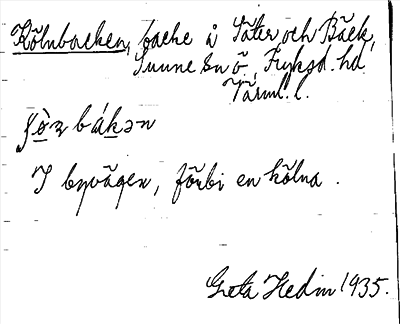 Kölnbacken, backe å Säter och Bäck,
Sunne sn ö, Fryksd. hd
Värml. l.
bákən
I byvägen, förbi en kölna.
Greta Hedin 1935.